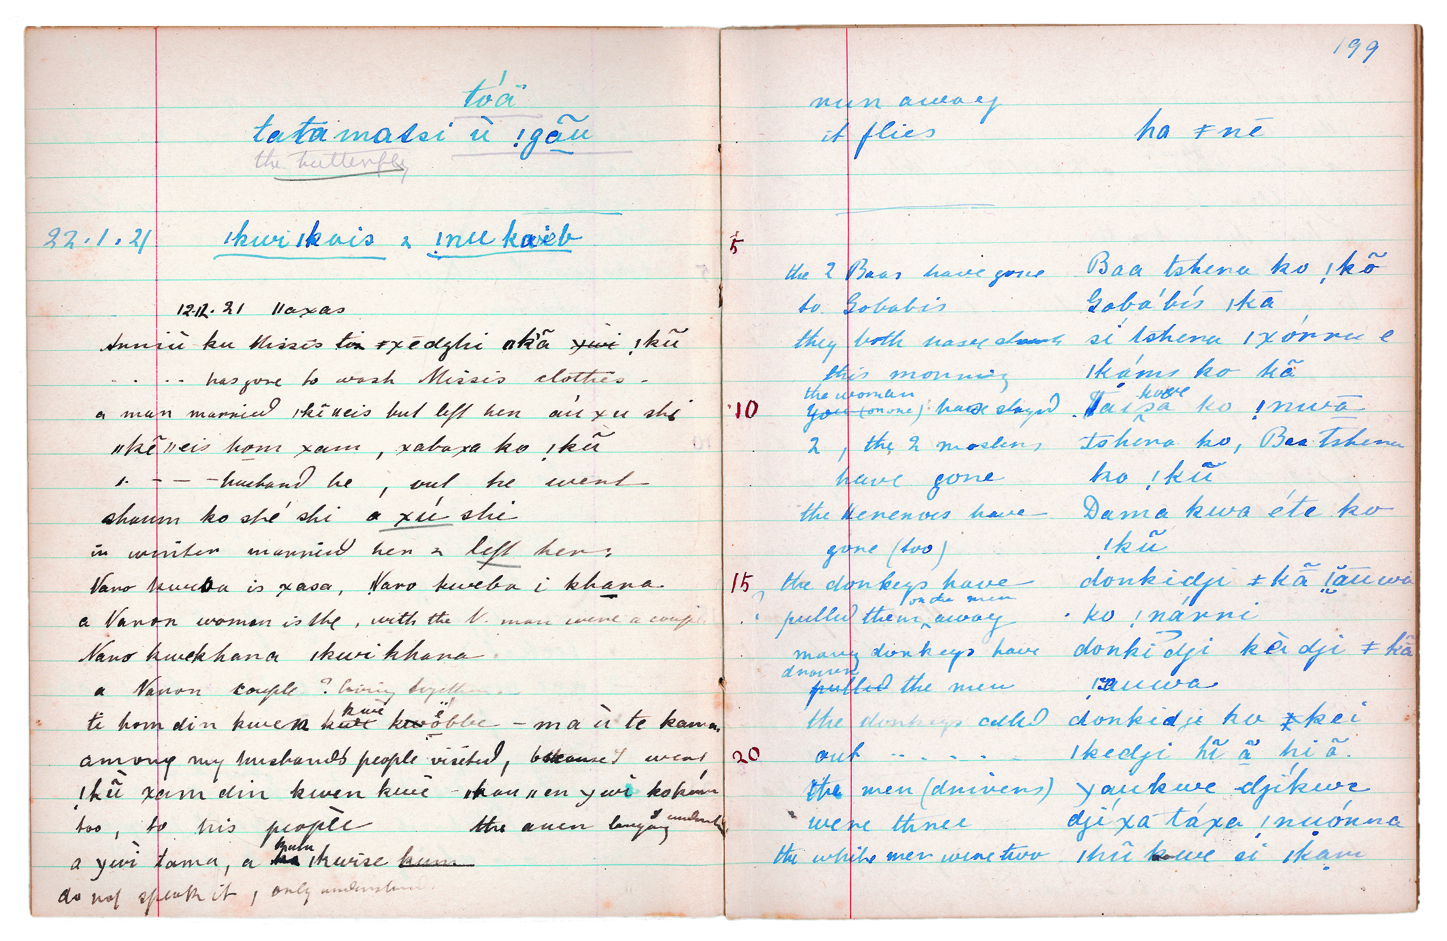 tóä
tatamatsi ù !gãu
the butterfly
22.1.21 ǀkwiǀkais & !nu kaieb
12.12.21 ǁaxas
ku Missis ǂxēdzhi !kũ
.. .. has gone to wash Missis clothes -
a man married ǀkēǁeis but left her áú xu shi
ǁkēǁeis hom xam, xabaxa ko !kũ
" - - - husband he, but he went
shaum ko shé shi a xú shi
in winter married her & left her.
Naro kweba is xasa, Naro kweba i khana
a Naron woman is the, with the N. man were a couple
Naro kwekhana ǀkwikhana
a Naron couple ? living together.
te hom din kwena kwé öbbe - ma ù te kama
among my husband's people visited, because I went
!kũ xam din kwen kwé - ǁkauǁen ywi
too, to his people the auen language I understand
a ywi tama, a kum ǀkwise
do not speak it, only understand.
199
run away
it flies ha ǂnē
5
the 2 Baas have gone Baa tshena ko !kõ
to Gobabis Gobábís ǀkā
they both have sí tshena ǀxórru e
this morning ǀkáms ko kã
the woman have
10 (or one) have stayed ko !nwā
2, the 2 masters tshēna ko, Baa tshena
have gone ko !kũ
the Hereros have Dama kwa éte ko
gone (too) !kũ
15 the donkeys have donkidji ǂkã !ãuwa
on the men
pulled them away ko !nárni
many donkeys have donkidji kèidji ǂkã
driven
the men !auwa
the donkeys called donkidje ko ǂkei
20 out .. - . - . ǀkedji hĩ ã hi ã.
the men (drivers) yaukwe djíkwe
were three djíxa táxa !nuónna
the white men were two ǀhũ kwe si ǀkam